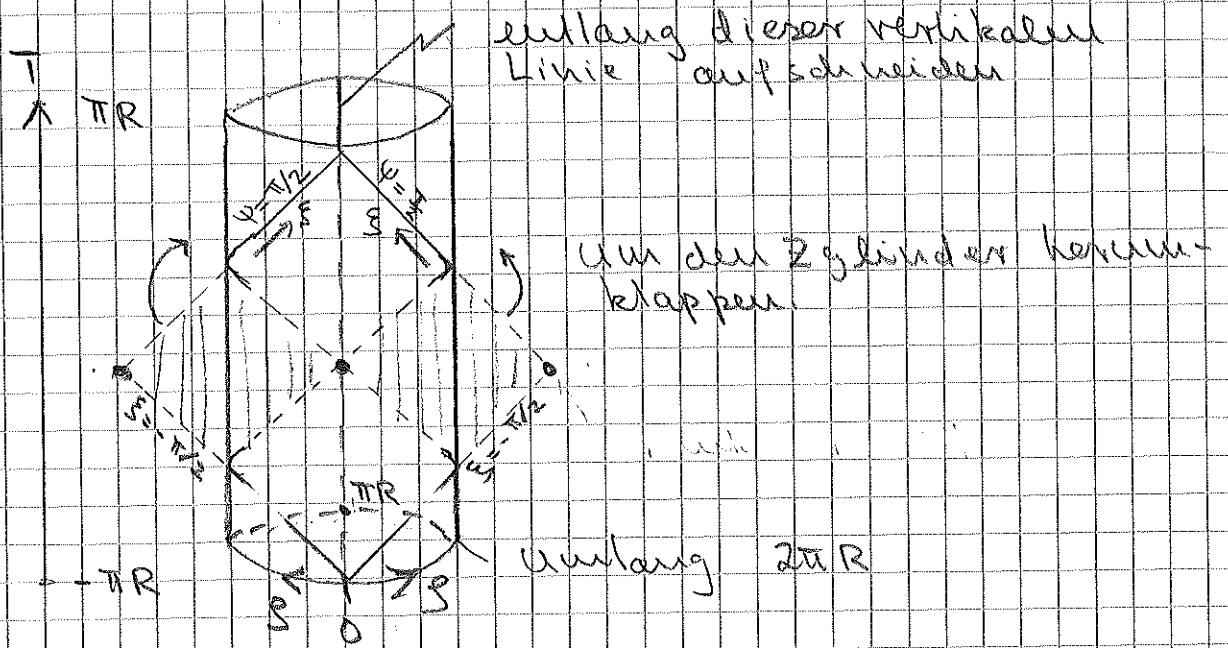 entlang dieser vertikalen
Linie aufschneiden
T
πR
ψ = π/2
ψ = π/2
ξ
ξ
um den Zylinder herum-
klappen.
ξ = π/2
ξ = π/2
πR
Umfang 2πR
-πR
ρ
ρ
0